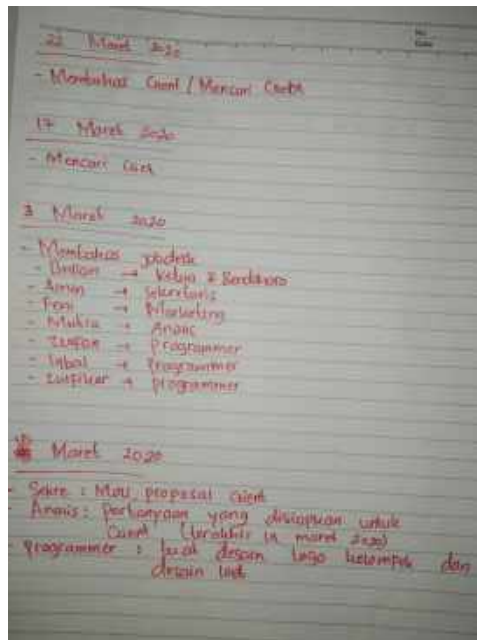 No
Date
22 Maret 2020
- Membahas Client / Mencari Client
17 Maret 2020
- Mencari Client
3 Maret 2020
- Membahas jobdesk
- → Ketua & Bendahara
- → Sekretaris
- Feni → Marketing
- → Analis
- → Programmer
- Iqbal → Programmer
- Zulfikar → programmer
Maret 2020
- Sekre : MoU, proposal client
- Analis : pertanyaan yang disiapkan untuk
Client (terakhir maret 2020)
- programmer : buat desain logo kelompok dan
desain